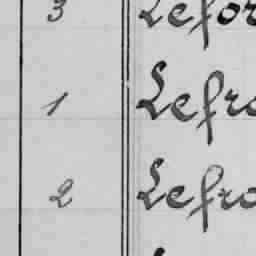 3 Lefor
1 Lefro
2 Lefro